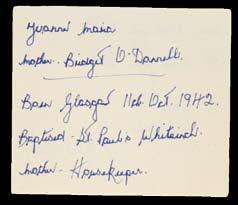 Yvonne Maria
Mother. Bridget O'Donnell.
Born Glasgow 11th. Oct. 1942.
Baptised - St. Paul's Whiteinch.
Mother - Housekeeper.